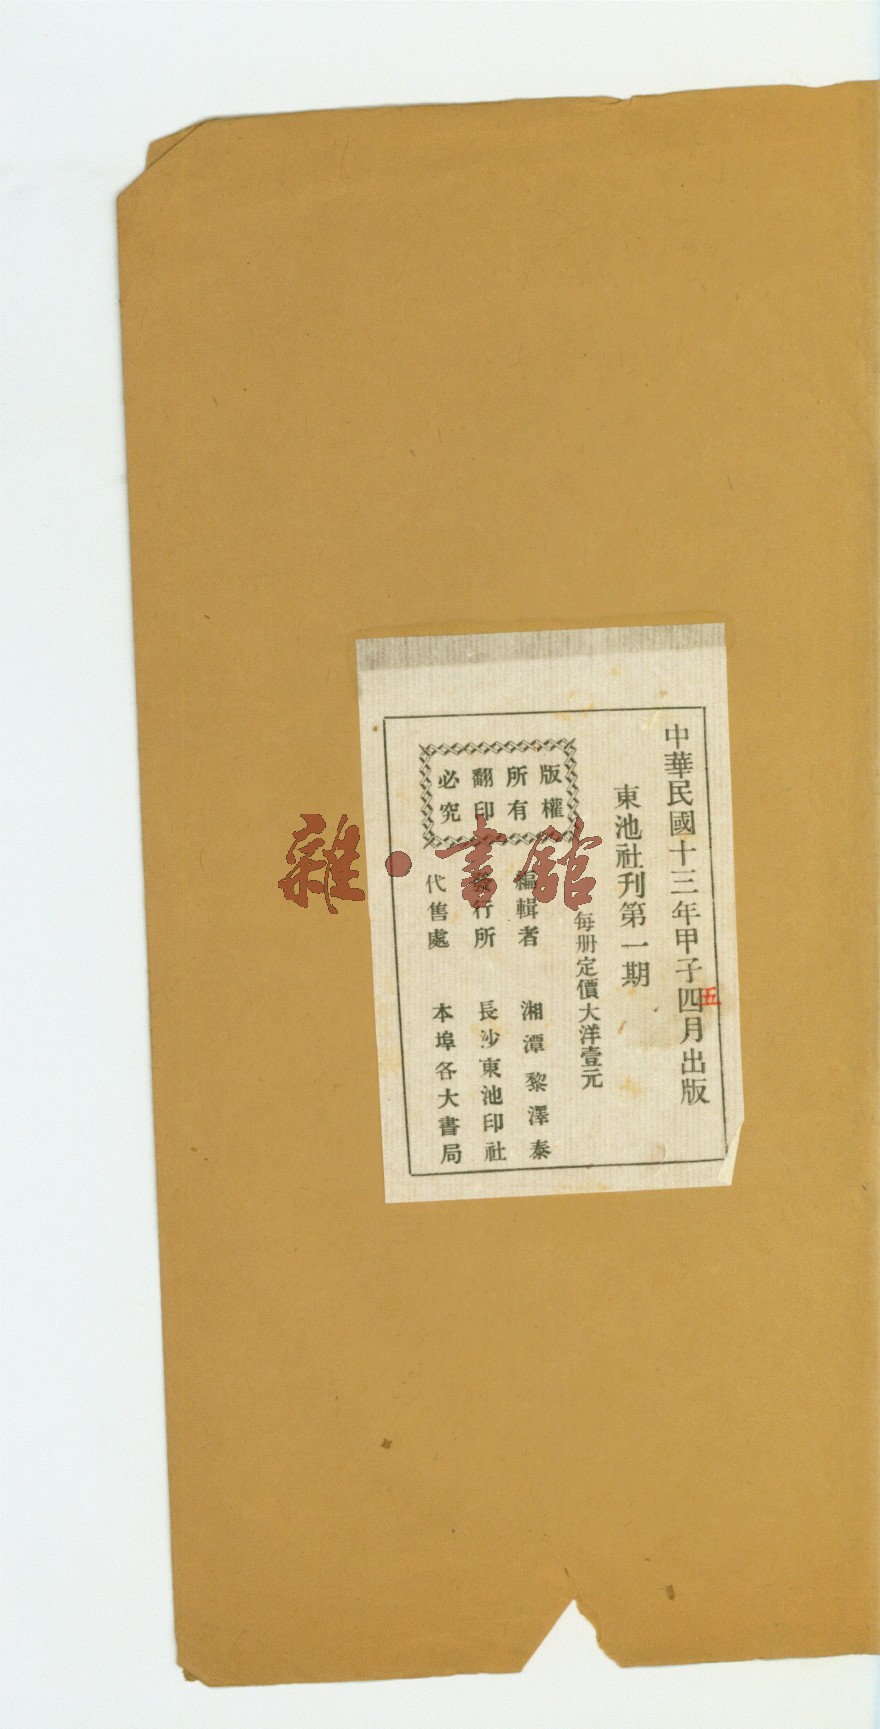 中華民國十三年甲子四月出版
五
東池社刊第一期
每册定價大洋壹元
版權
所有
翻印
必究
編輯者 湘潭黎澤泰
發行所 長沙東池印社
代售處 本埠各大書局
雜·書館